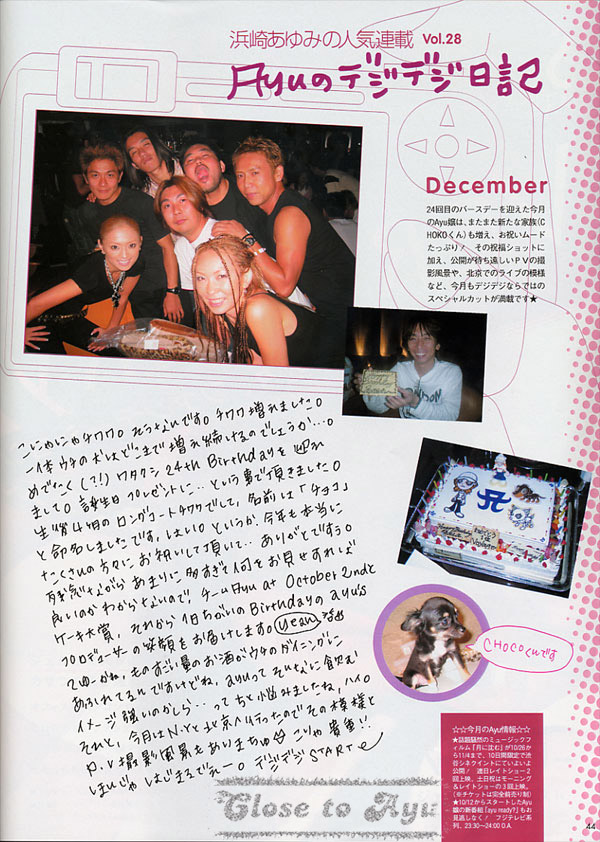 浜崎あゆみの人気連載 Vol.28
Ayuのデジデジ日記
December
24回目のバースデーを迎えた今月
のAyu嬢は、またまた新たな家族(C
HOKOくん)も増え、お祝いムード
たっぷり♪ その祝福ショットに
加え、公開が待ち遠しいPVの撮
影風景や、北京でのライブの模様
など、今月もデジデジならではの
スペシャルカットが満載です★
こにゃにゃチワワ。そうなんです。チワワ増えました。
一体ウチの犬はどこまで増え続けるのでしょうか…。
めでたく(?!)ワタクシ24th Birthdayを迎え
ました。誕生日プレゼントに…という事で頂きました。
生後4ヶ月のロングコートチワワでして、名前は「チョコ」
と命名しましたです。はい。というか、今年も本当に
たくさんの方々にお祝いして頂いて…ありがとです。
残念ながらあまりに多すぎて何をお見せすれば
良いのかわからないので、チームAyu at October 2ndと
ケーキ大賞、それから1日ちがいのBirthdayのayu's
プロデューサーの笑顔をお届けします。yeah
てゆーかね、ものすごい量のお酒がウチのダイニングに
あふれてるんですけどね、ayuってそんなに飲む
イメージ強いのかしら…ってちと悩みましたね。ハイ。
それと、今月はN.Yと北京へ行ったのでその模様と
P.V撮影風景もありまちゅ こりゃ貴重!!
ほいじゃはじまるでれー。デジデジSTART
CHOCOくんです
☆☆今月のAyu情報☆☆
★話題騒然のミュージックフ
ィルム『月に沈む』が10/26か
ら11/4まで、10日間限定で渋
谷シネクイントにていよいよ
公開! 連日レイトショー2
回上映、土日祝はモーニング
&レイトショーの3回上映。
(※チケットは完全前売り制)
★10/12からスタートしたAyu
嬢の新番組『ayu ready?』もお
見逃しなく! フジテレビ系
列、23:30〜24:00 O.A.
Close to Ayu
44